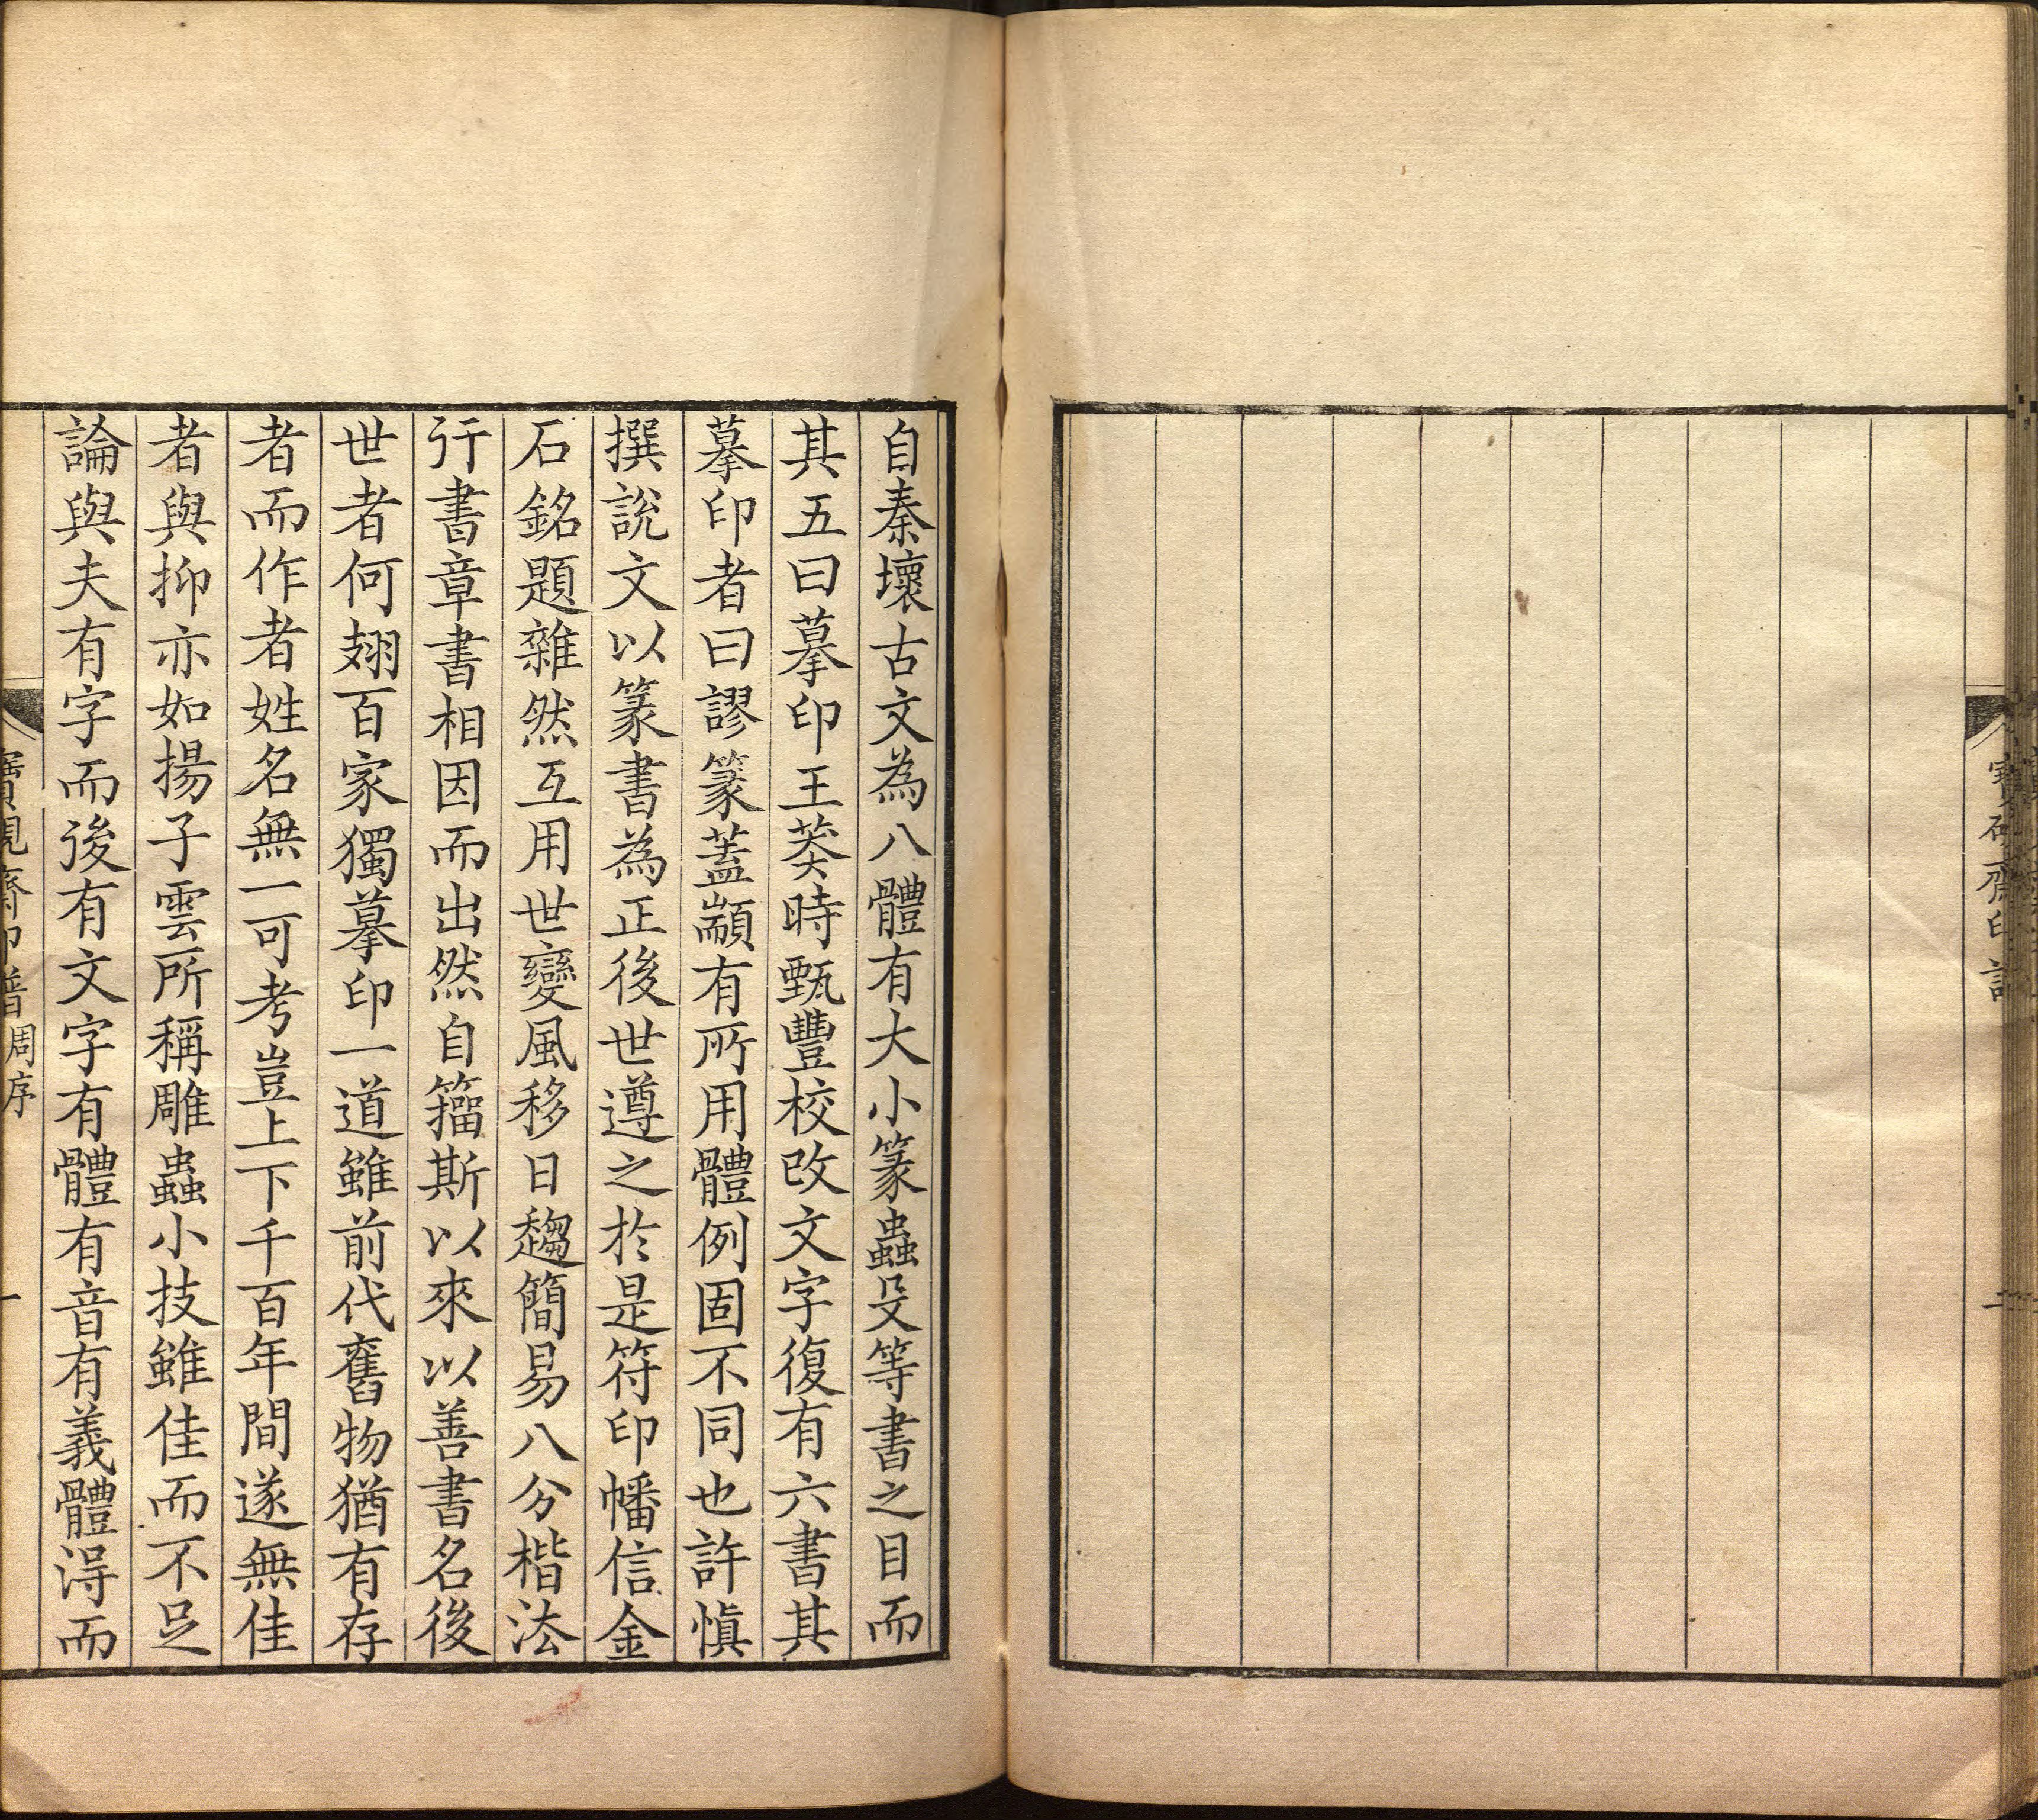 自秦壞古文為八體有大小篆蟲殳等書之目而
其五曰摹印王莽時甄豐校改文字復有六書其
摹印者曰謬篆蓋顓有所用體例固不同也許慎
撰說文以篆書為正後世遵之於是符印幡信金
石銘題雜然互用世變風移日趨簡易八分楷法
行書章書相因而出然自籀斯以來以善書名後
世者何翅百家獨摹印一道雖前代舊物猶有存
者而作者姓名無一可考豈上下千百年間遂無佳
者與抑亦如揚子雲所稱雕蟲小技雖佳而不足
論與夫有字而後有文字有體有音有義體淂而
寶硯齋印譜 周序
一